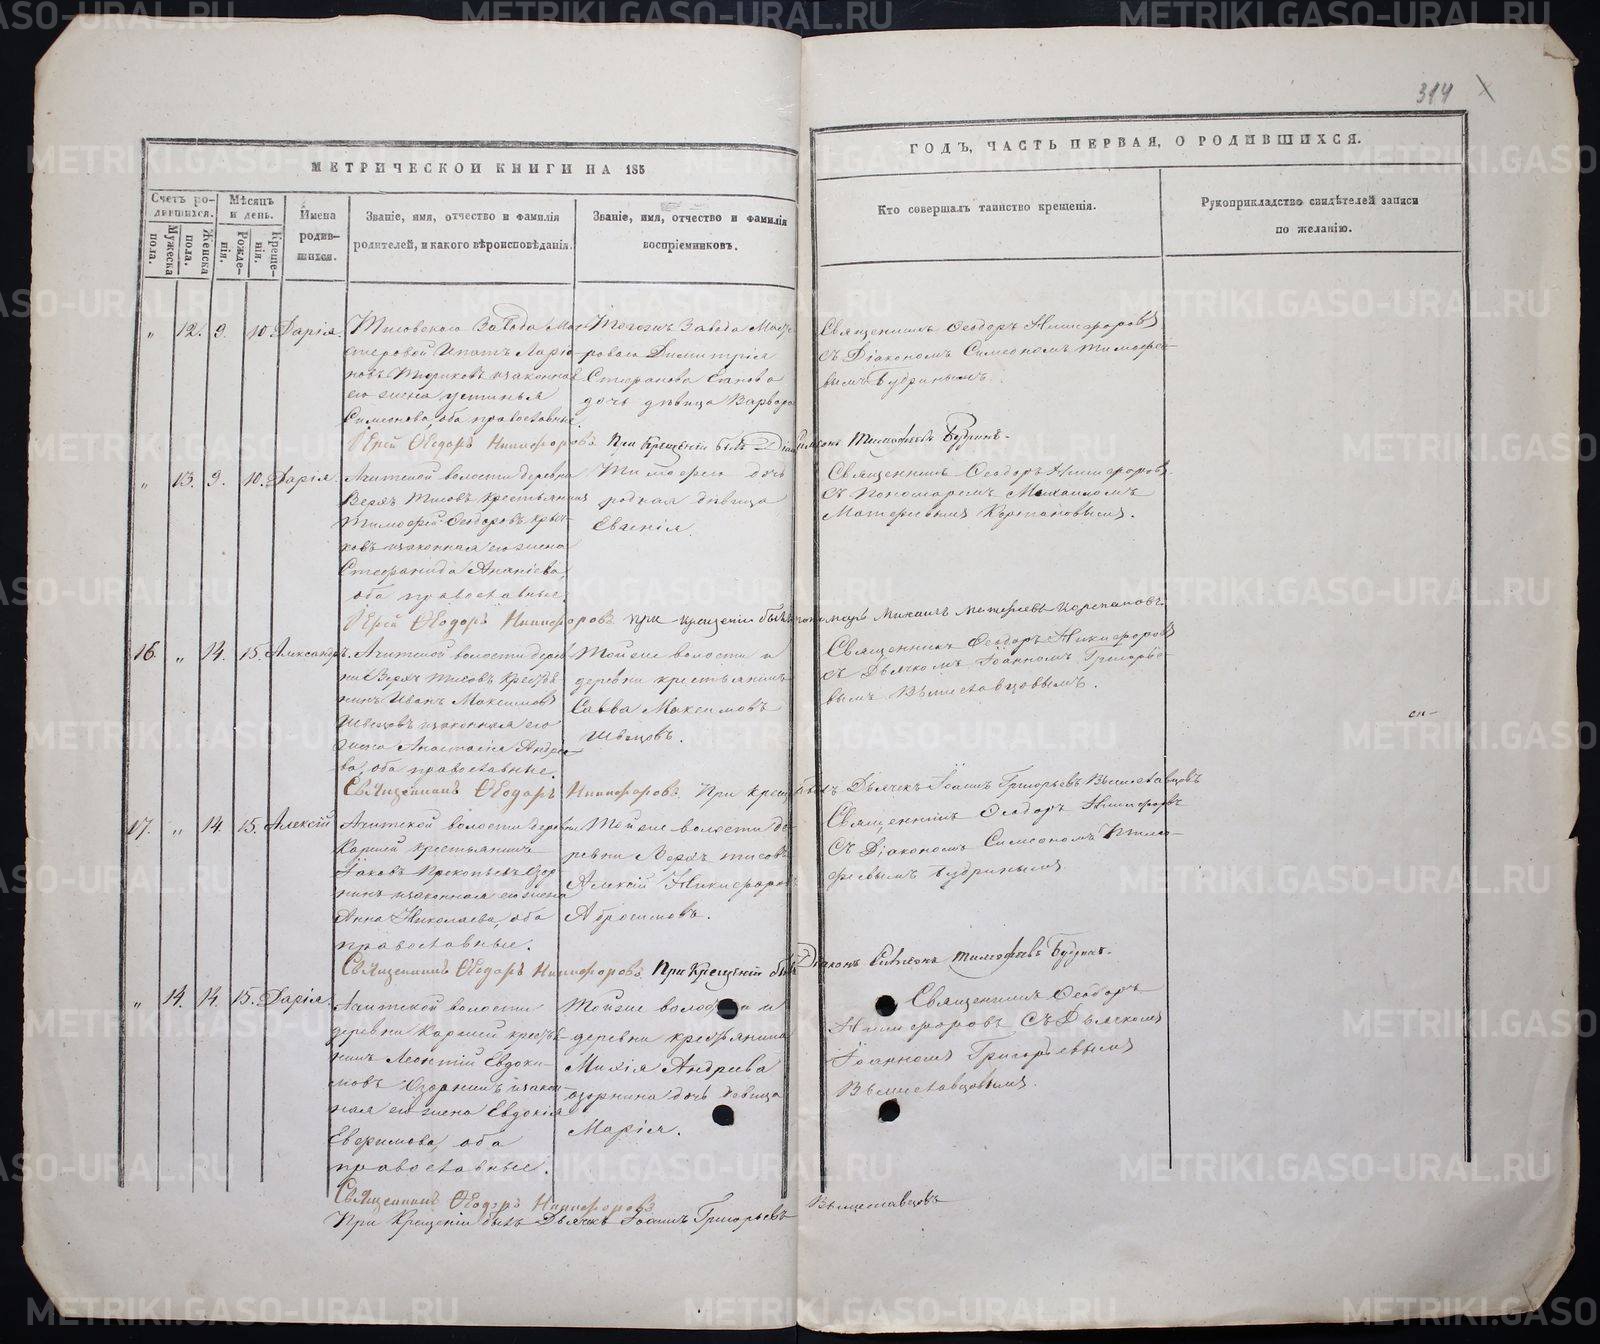 314
МЕТРИЧЕСКОЙ КНИГИ НА 185
ГОДЪ, ЧАСТЬ ПЕРВАЯ, О РОДИВШИХСЯ.
Счетъ родившихся.
Мужеска пола.
Женска пола.
Мѣсяцъ и день.
Рожденія.
Крещенія.
Имена родившихся.
Званіе, имя, отчество и фамилія
родителей, и какого вѣроисповѣданія.
Званіе, имя, отчество и фамилія
воспріемниковъ.
Кто совершалъ таинство крещенія.
Рукоприкладство свидѣтелей записи
по желанію.
„ 12. 9. 10. Дарія.
Тисовскаго Завода Мас-
теровой Ипатъ Ларіо-
новъ законная
его жена Устинья
Симеонова, оба православные.
Тогожъ Завода Масте-
роваго Димитрія
Стефанова
дочь дѣвица Варвара
Священникъ Ѳеодоръ Никифоровъ
съ Діакономъ Симеономъ Тимофее-
вымъ Будринымъ.
Іерей Ѳеодоръ Никифоровъ. При Крещеніи былъ Діаконъ Тимофеевъ Будринъ.
„ 13. 9. 10. Дарія.
Ачитской волости деревни
Верхъ Тисовъ крестьянинъ
Тимофей Ѳеодоровъ
законная его жена
Стефанида Ананіева,
оба православные.
Тимофея дочь
родная дѣвица
Евгенія.
Священникъ Ѳеодоръ Никифоровъ
съ Пономаремъ Михаиломъ
Матфеевымъ Карепановымъ.
Іерей Ѳеодоръ Никифоровъ при крещеніи былъ пономарь Михаилъ Матфеевъ Карепановъ.
16. „ 14. 15. Александръ.
Ачитской волости дерев-
ни Верхъ Тисовъ Крестья-
нинъ Иванъ Максимовъ
Швецовъ и законная его
жена Анастасія Андрее-
ва, оба православные.
Тойже волости и
деревни крестьянинъ
Савва Максимовъ
Швецовъ.
Священникъ Ѳеодоръ Никифоровъ
съ Дьячкомъ Іоанномъ Григорье-
вымъ
Священникъ Ѳеодоръ Никифоровъ. При крещеніи былъ Дьячекъ Іоаннъ Григорьевъ
17. „ 14. 15. Алексій
Ачитской волости деревни
Каршей крестьянинъ
Іаковъ Прокопьевъ Озор-
нинъ и законная его жена
Анна Николаева, оба
православные.
Тойже волости де-
ревни Верхъ тисовъ
Алексій Никифоровъ
Абросимовъ.
Священникъ Ѳеодоръ Никифоровъ
съ Діакономъ Симеономъ Тимо-
феевымъ Будринымъ
Священникъ Ѳеодоръ Никифоровъ. При Крещеніи былъ Діаконъ Симеонъ Тимофеевъ Будринъ.
„ 14. 14. 15. Дарія.
Ачитской волости
деревни Каршей кресть-
нинъ Леонтій Евдоки-
мовъ Озорнинъ и закон-
ная его жена Евдокія
Евфимова, оба
православные.
Тойже волости и
деревни крестьянина
Андреева
озорнина дочь девица
Марія.
Священникъ Ѳеодоръ
Никифоровъ съ Дьячкомъ
Іоанномъ Григорьевымъ
Священникъ Ѳеодоръ Никифоровъ
При Крещеніи былъ Дьячекъ Іоаннъ Григорьевъ
METRIKI.GASO-URAL.RU